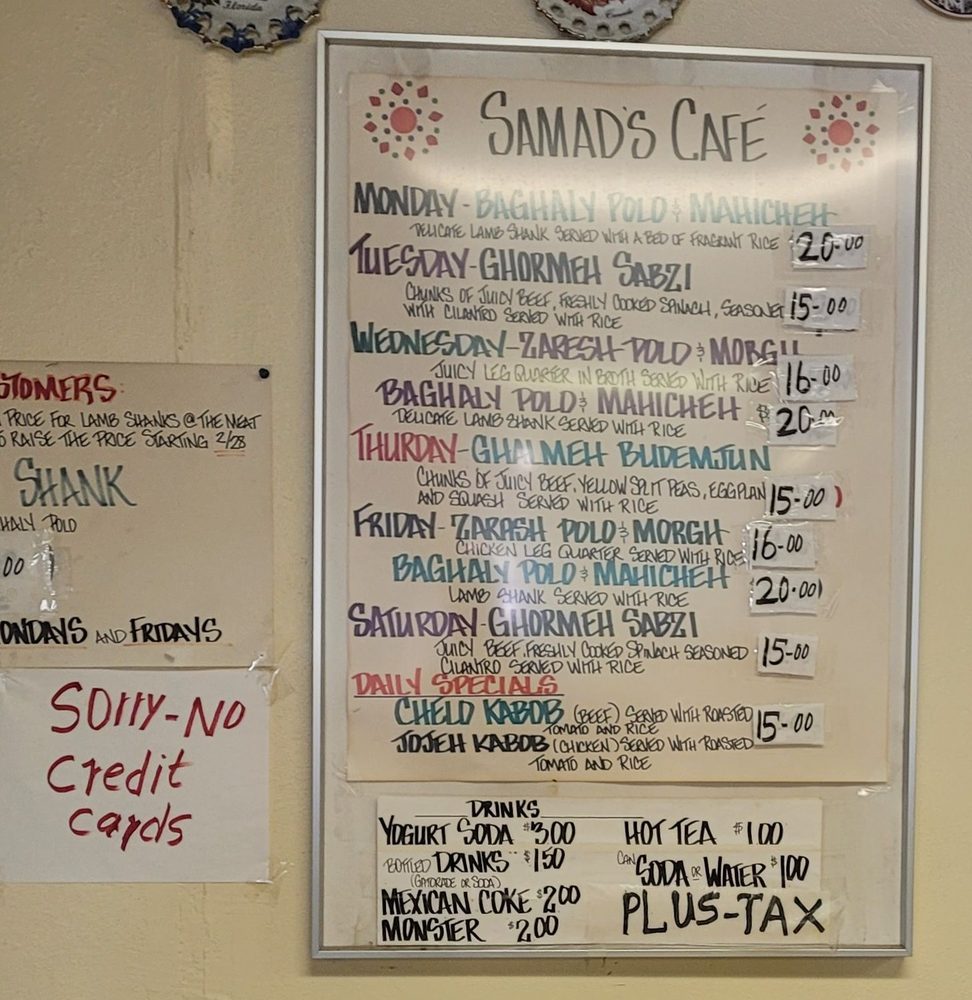 Florida
SAMAD'S CAFÉ
MONDAY - BAGHALY POLO & MAHICHEH
DELICATE LAMB SHANK SERVED WITH A BED OF FRAGRANT RICE $20-00
TUESDAY - GHORMEH SABZI
CHUNKS OF JUICY BEEF, FRESHLY COOKED SPINACH, SEASONED 15-00
WITH CILANTRO SERVED WITH RICE
WEDNESDAY - ZARESH POLO & MORGH
JUICY LEG QUARTER IN BROTH SERVED WITH RICE 16-00
BAGHALY POLO & MAHICHEH $20-00
DELICATE LAMB SHANK SERVED WITH RICE
THURDAY - GHALMEH BUDEMJUN
CHUNKS OF JUICY BEEF, YELLOW SPLIT PEAS, EGGPLAN 15-00
AND SQUASH SERVED WITH RICE
FRIDAY - ZARASH POLO & MORGH
CHICKEN LEG QUARTER SERVED WITH RICE 16-00
BAGHALY POLO & MAHICHEH
LAMB SHANK SERVED WITH RICE 20-00
SATURDAY - GHORMEH SABZI
JUICY BEEF, FRESHLY COOKED SPINACH SEASONED 15-00
CILANTRO SERVED WITH RICE
DAILY SPECIALS
CHELO KABOB (BEEF) SERVED WITH ROASTED 15-00
TOMATO AND RICE
JOJEH KABOB (CHICKEN) SERVED WITH ROASTED
TOMATO AND RICE
DRINKS
YOGURT SODA $3.00
BOTTLED DRINKS $1.50
(GATORADE OR SODA)
MEXICAN COKE $2.00
MONSTER $2.00
HOT TEA $1.00
CAN SODA OR WATER $1.00
PLUS-TAX
STOMERS:
PRICE FOR LAMB SHANKS @ THE MEAT
RAISE THE PRICE STARTING 2/28
SHANK
HALY POLO
00
ONDAYS AND FRIDAYS
SORRY-NO
credit
cards